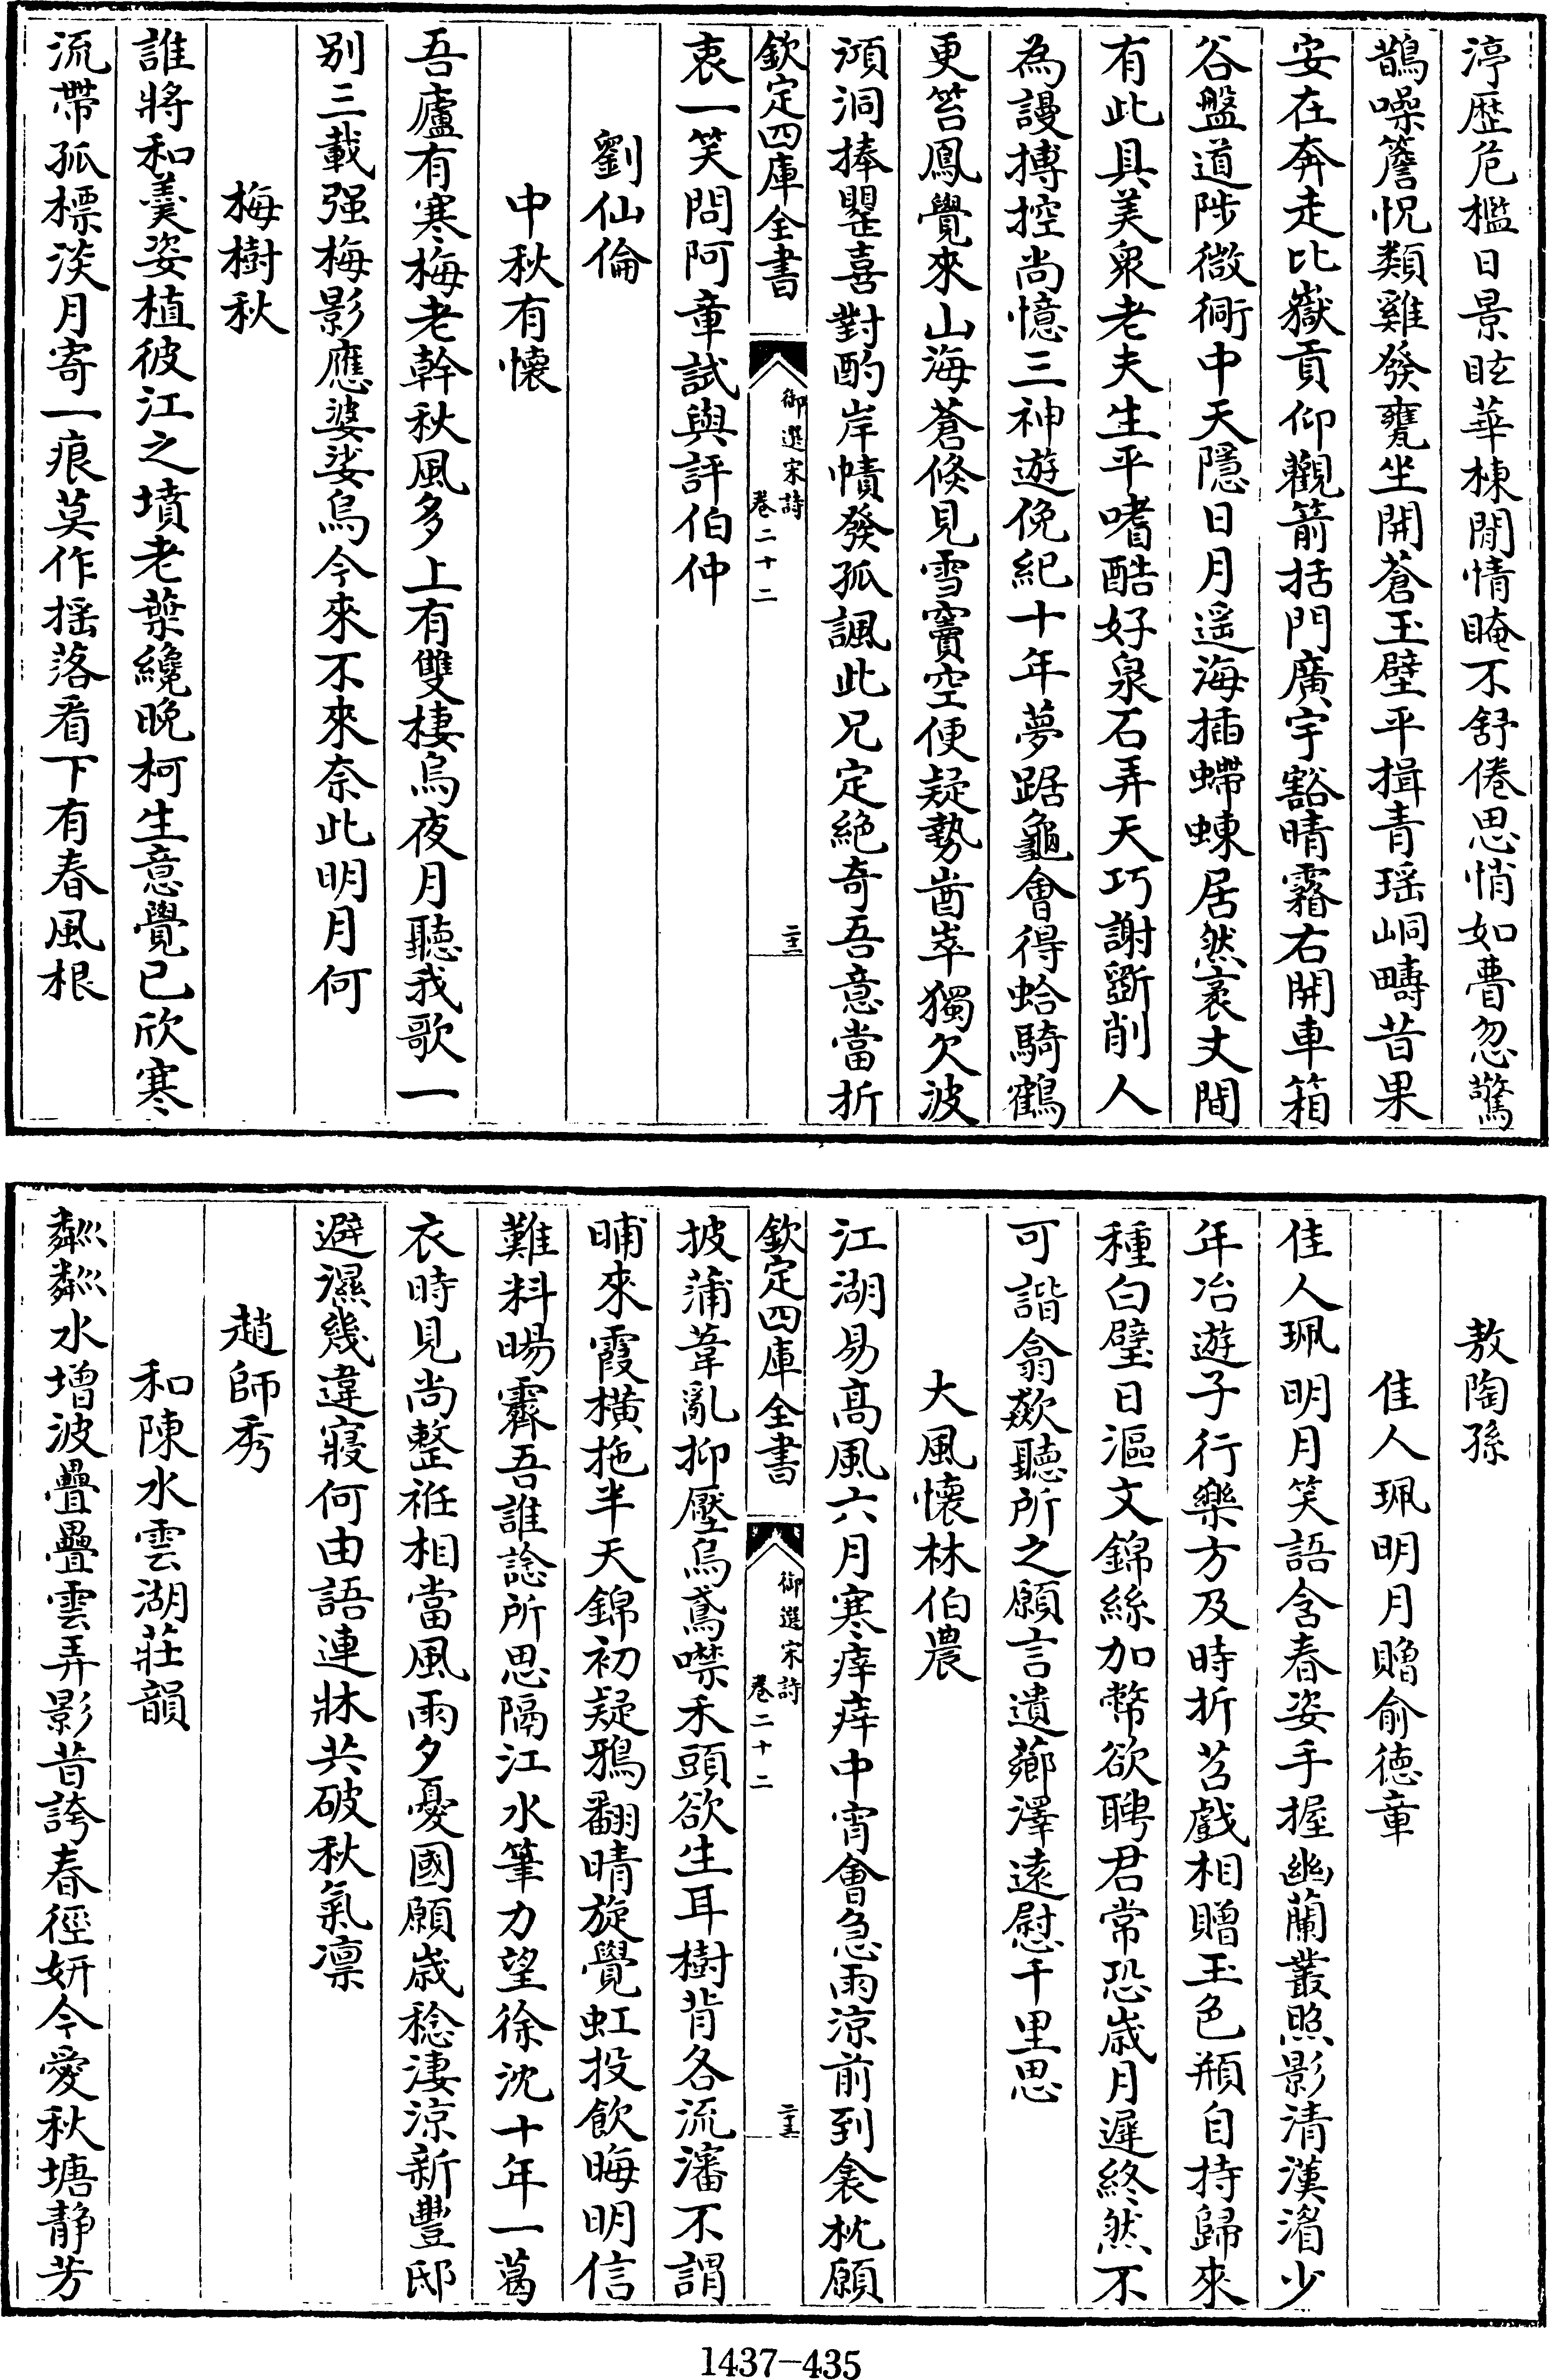 渟歴危檻日景眩華棟閒情晻不舒倦思悄如瞢忽驚
鵲噪簷怳類雞發甕坐開蒼玉壁平揖青瑶峒疇昔果
安在奔走比嶽貢仰觀箭括門廣宇豁晴霧右開車箱
谷盤道陟微衕中天隱日月遥海插螮蝀居然袤丈間
有此具美衆老夫生平嗜酷好泉石弄天巧謝斵削人
為謾摶控尚憶三神遊俛紀十年夢踞龜會得蛤騎鶴
更笞鳳覺來山海蒼倏見雪竇空便疑勢崷崒獨欠波
澒洞捧罌喜對酌岸幘發孤諷此兄定絶奇吾意當折
欽定四庫全書
御選宋詩
卷二十二
二十三
衷一笑問阿章試與評伯仲
劉仙倫
中秋有懷
吾廬有寒梅老幹秋風多上有雙棲烏夜月聽我歌一
别三載强梅影應婆娑烏今來不來奈此明月何
梅樹秋
誰將和羮姿植彼江之墳老葉纔晚柯生意覺已欣寒
流帶孤標淡月寄一痕莫作摇落看下有春風根
敖陶孫
佳人珮明月贈俞徳章
佳人珮明月笑語含春姿手握幽蘭叢照影清漢湄少
年冶遊子行樂方及時折苕戲相贈玉色頩自持歸來
種白璧日漚文錦絲加幣欲聘君常恐歳月遲終然不
可諧翕歘聽所之願言遺薌澤遠慰千里思
大風懷林伯農
江湖易髙風六月寒痒痒中宵會急雨涼前到衾枕願
欽定四庫全書
御選宋詩
卷二十二
二十三
披蒲葦亂抑壓烏鳶噤禾頭欲生耳樹背各流瀋不謂
晡來霞横拖半天錦初疑鴉翻晴旋覺虹投飲晦明信
難料暘霽吾誰諗所思隔江水筆力望徐沈十年一葛
衣時見尚整袵相當風雨夕憂國願歳稔淒涼新豐邸
避濕幾違寢何由語連牀共破秋氣凛
趙師秀
和陳水雲湖莊韻
粼粼水增波疊疊雲弄影昔誇春徑妍今愛秋塘静芳
1437-435